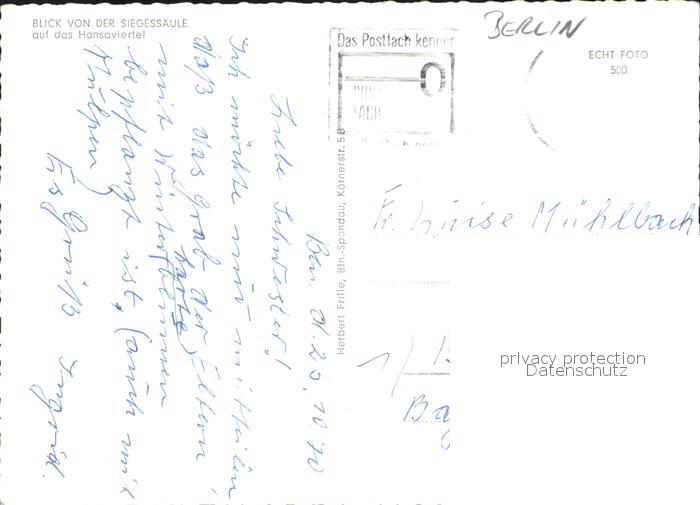 BLICK VON DER SIEGESSÄULE
auf das Hansaviertel
BERLIN
ECHT FOTO
500
Das Postfach kenner
POST
FACH
Herbert Frille, Bln.-Spandau, Körnerstr. 5B
Bln. d. 20.10.70
Liebe Schwester!
Ich möchte nur mitteilen,
daß das Grab der Eltern,
mit Winterblumen
bepflanzt ist, (auch mit
Tulpen)
Es Grüßt Ingrid.
Fr. Luise Mühlbach
1/
Ba
privacy protection
Datenschutz